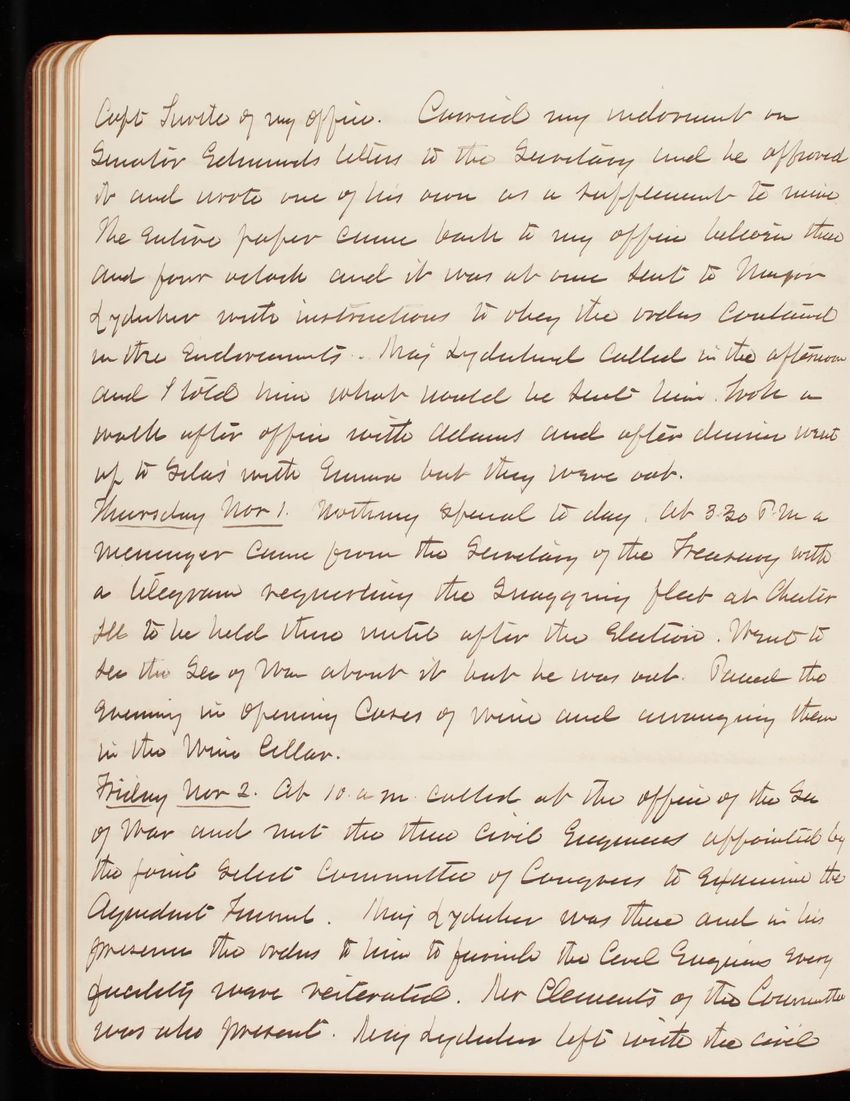 Capt Turtle of my office. Carried my indorsement on
Senator Edmunds letters to the Secretary and he approved
it and wrote one of his own as a supplement to mine
The entire paper came back to my office between three
and four oclock and it was at once sent to Major
Lydecker with instructions to obey the orders contained
in the endorsements. Maj Lydecker called in the afternoon
and I told him what would be sent him. Took a
walk after office with Adams and after dinner went
up to with Emma but they were out.
Thursday Nov 1. Nothing special to day. At 3.30 P.M a
messenger came from the Secretary of the Treasury with
a telegram requesting the Snagging fleet at Chester
Ill to be held there until after the Election. Went to
see the Sec of War about it but he was out. Passed the
evening in opening Cases of wine and arranging them
in the Wine Cellar.
Friday Nov 2. At 10 a m called at the office of the Sec
of War and met the three Civil Engineers appointed by
the joint Select Committee of Congress to Examine the
Aqueduct Tunnel. Maj Lydecker was there and in his
presence the orders to him to furnish the Civil Engineers every
facility were reiterated. Mr Clements of the Committee
was also present. Maj Lydecker left with the civil